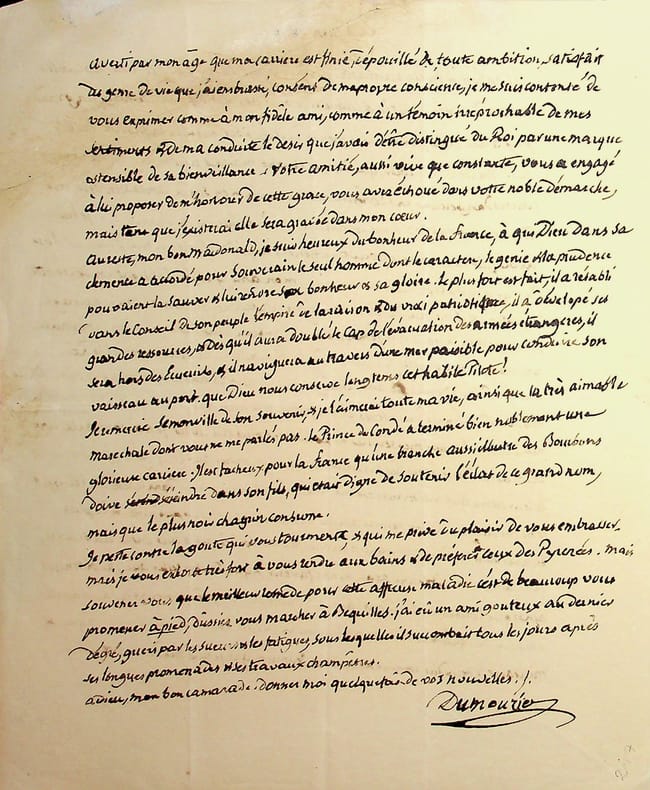 averti par mon âge que ma carriere est finie, dépouillé de toute ambition, satisfait
du genre de vie que j'ai embrassé, content de ma propre conscience, je me suis contenté de
vous exprimer comme à mon fidèle ami, comme à un témoin irréprochable de mes
sentiments & de ma conduite le desir que j'avais d'être distingué du Roi par une marque
ostensible de sa bienveillance. votre amitié, aussi vive que constante, vous a engagé
à lui proposer de m'honorer de cette grace, vous avez échoué dans votre noble démarche,
mais tant que j'existerai elle sera gravée dans mon cœur.
au reste, mon bon Macdonald, je suis heureux du bonheur de la france, à qui Dieu dans sa
clemence a accordé pour Souverain le seul homme dont le caractere, le genie & la prudence
pouvaient la sauver & lui rendre son bonheur & sa gloire. le plus fort est fait, il a rétabli
dans le Conseil de son peuple l'empire de la raison & du vrai patriotisme, il a développé ses
grandes ressources, & dès qu'il aura doublé le Cap de l'évacuation des armées étrangeres, il
sera hors des Ecueils, & il naviguera au travers d'une mer paisible pour conduire son
vaisseau au port. que Dieu nous conserve longtems cet habile Pilote!
Je remercie Semonville de son souvenir, & je l'aimerai toute ma vie, ainsi que la très aimable
marechale dont vous ne me parlés pas. le Prince de Condé a terminé bien noblement une
glorieuse carriere. Il est facheux pour la france qu'une branche aussi illustre des Bourbons
doive s'éteindre dans son fils, qui était digne de soutenir l'éclat de ce grand nom,
mais que le plus noir chagrin consume.
Je peste contre la goute qui vous tourmente, & qui me prive du plaisir de vous embrasser.
mais je vous exhorte très fort à vous rendre aux bains & de préférence ceux des Pyrenées. mais
souvenez vous que le meilleur remede pour cette affreuse maladie c'est de beaucoup vous
promener à pied, dussiez vous marcher à Bequilles. j'ai eû un ami gouteux au dernier
dégré, gueri par les sueurs & les fatigues, sous lesquelles il succombait tous les jours après
ses longues promenades & ses travaux champêtres.
adieu, mon bon camarade. donner moi quelquefois de vos nouvelles ./.
Dumouriez